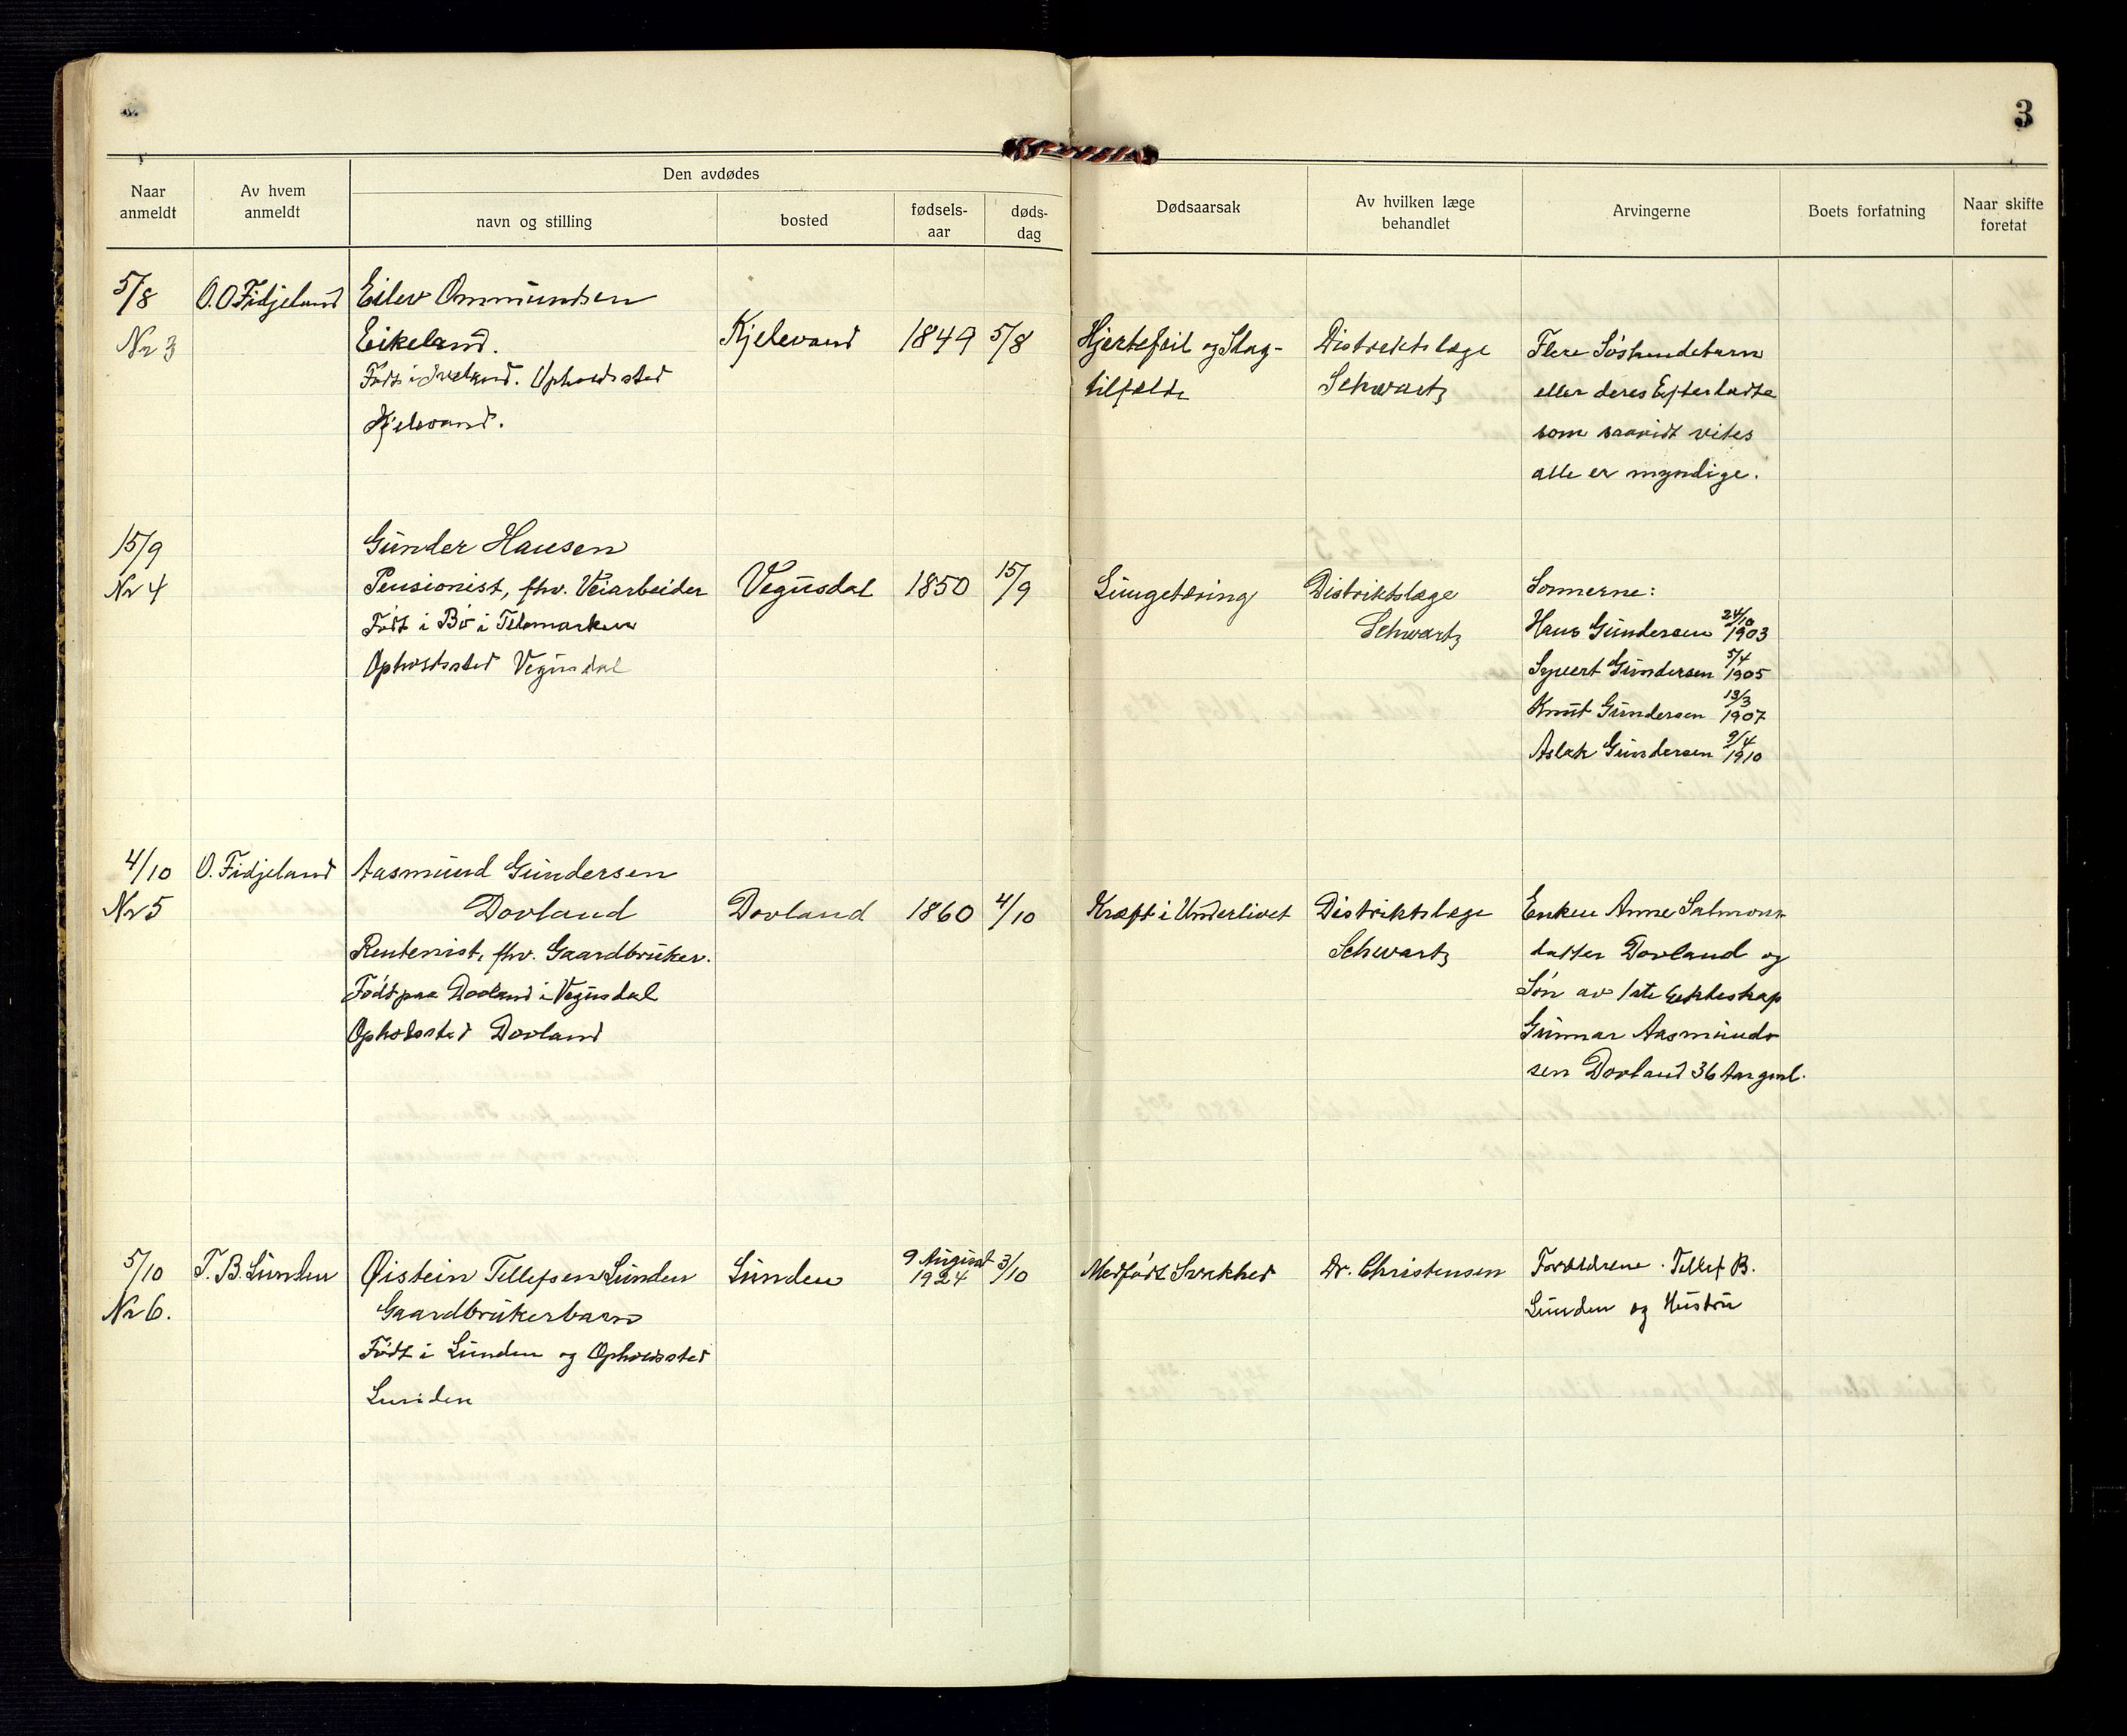 3
Den avdødes
Naar anmeldt
Av hvem anmeldt
navn og stilling
bosted
fødsels-aar
døds-dag
Dødsaarsak
Av hvilken læge behandlet
Arvingerne
Boets forfatning
Naar skifte foretat
5/8
Nr 3
O. O Fidjeland
Eilev Ommundsen
Eikeland.
Født i Iveland. Opholdssted
Kjelevand.
Kjelevand
1849
5/8
Hjertefeil og Slag-
tilfælde
Distriktslæge
Schwartz
Flere Søskendebarn
eller deres Efterladte
som saavidt vites
alle er myndige.
15/9
Nr 4
Gunder Hansen
Pensionist, fhv. Veiarbeider
Født i Bø i Telemarken
Opholdssted Vegusdal
Vegusdal
1850
15/9
Lungetæring
Distriktslæge
Schwartz
Sønnerne:
Hans Gundersen 24/10 1903
Syvert Gundersen 5/4 1905
Knut Gundersen 13/3 1907
Aslak Gundersen 9/4 1910
4/10
Nr 5
O. Fidjeland
Aasmund Gundersen
Dovland
Rentenist, fhv. Gaardbruker.
Født paa Dovland i Vegusdal
Opholdssted Dovland
Dovland
1860
4/10
Kræft i Underlivet
Distriktslæge
Schwartz
Enken Anne Salmons-
datter Dovland og
Søn av 1ste Ekteskap
Gunnar Aasmunds-
sen Dovland 36 Aar gml.
5/10
Nr 6.
T. B. Lunden
Øistein Tellefsen Lunden
Gaardbrukerbarn
Født i Lunden og Opholdssted
Lunden
Lunden
9 August 1924
3/10
Medfødt Svakhed
Dr. Christensen
Forældrene. Tellef B.
Lunden og Hustru